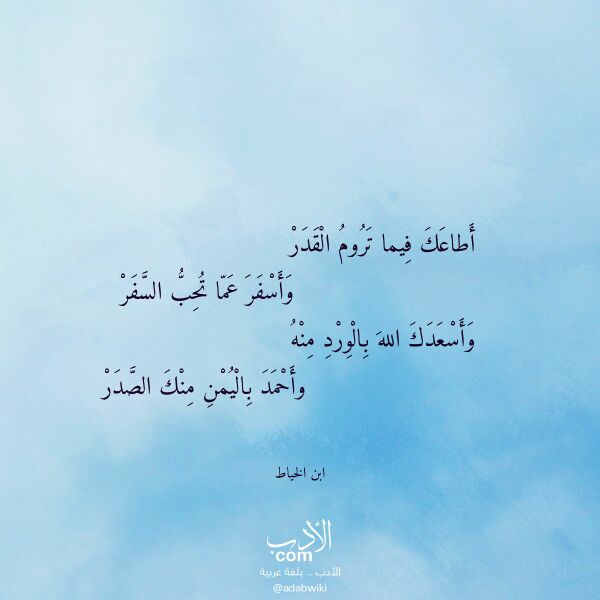 أَطاعَكَ فِيما تَرُومُ الْقَدَرْ
وَأَسْفَرَ عَمّا تُحِبُّ السَّفَرْ
وَأَسْعَدَكَ اللهَ بِالْوِرْدِ مِنْهُ
وأَحْمَدَ بِالْيُمْنِ مِنْكَ الصَّدَرْ
ابن الخياط
الأدب
com
الأدب .. بلغة عربية
@adabwiki